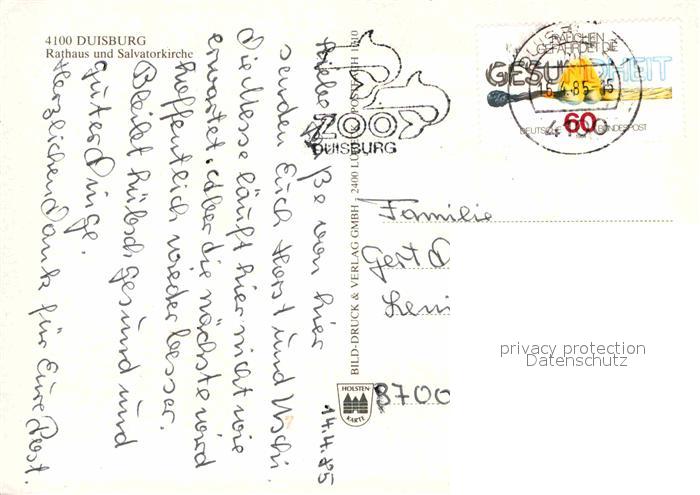 4100 DUISBURG
Rathaus und Salvatorkirche
14.4.85
Liebe Grüße von hier
senden Euch Horst und Uschi.
Die Messe läuft hier nicht wie
erwartet. Aber die nächste wird
hoffentlich wieder besser.
Bleibt hübsch gesund und
guter Dinge.
Herzlichen Dank für Eure Post.
BILD-DRUCK & VERLAG GMBH · 2400
HOLSTEN-
KARTE
ZOO
DUISBURG
RAUCHEN
GEFÄHRDET DIE
GESUNDHEIT
15.4.85-15
4100
60
DEUTSCHE BUNDESPOST
Familie
Gert
8700
privacy protection
Datenschutz